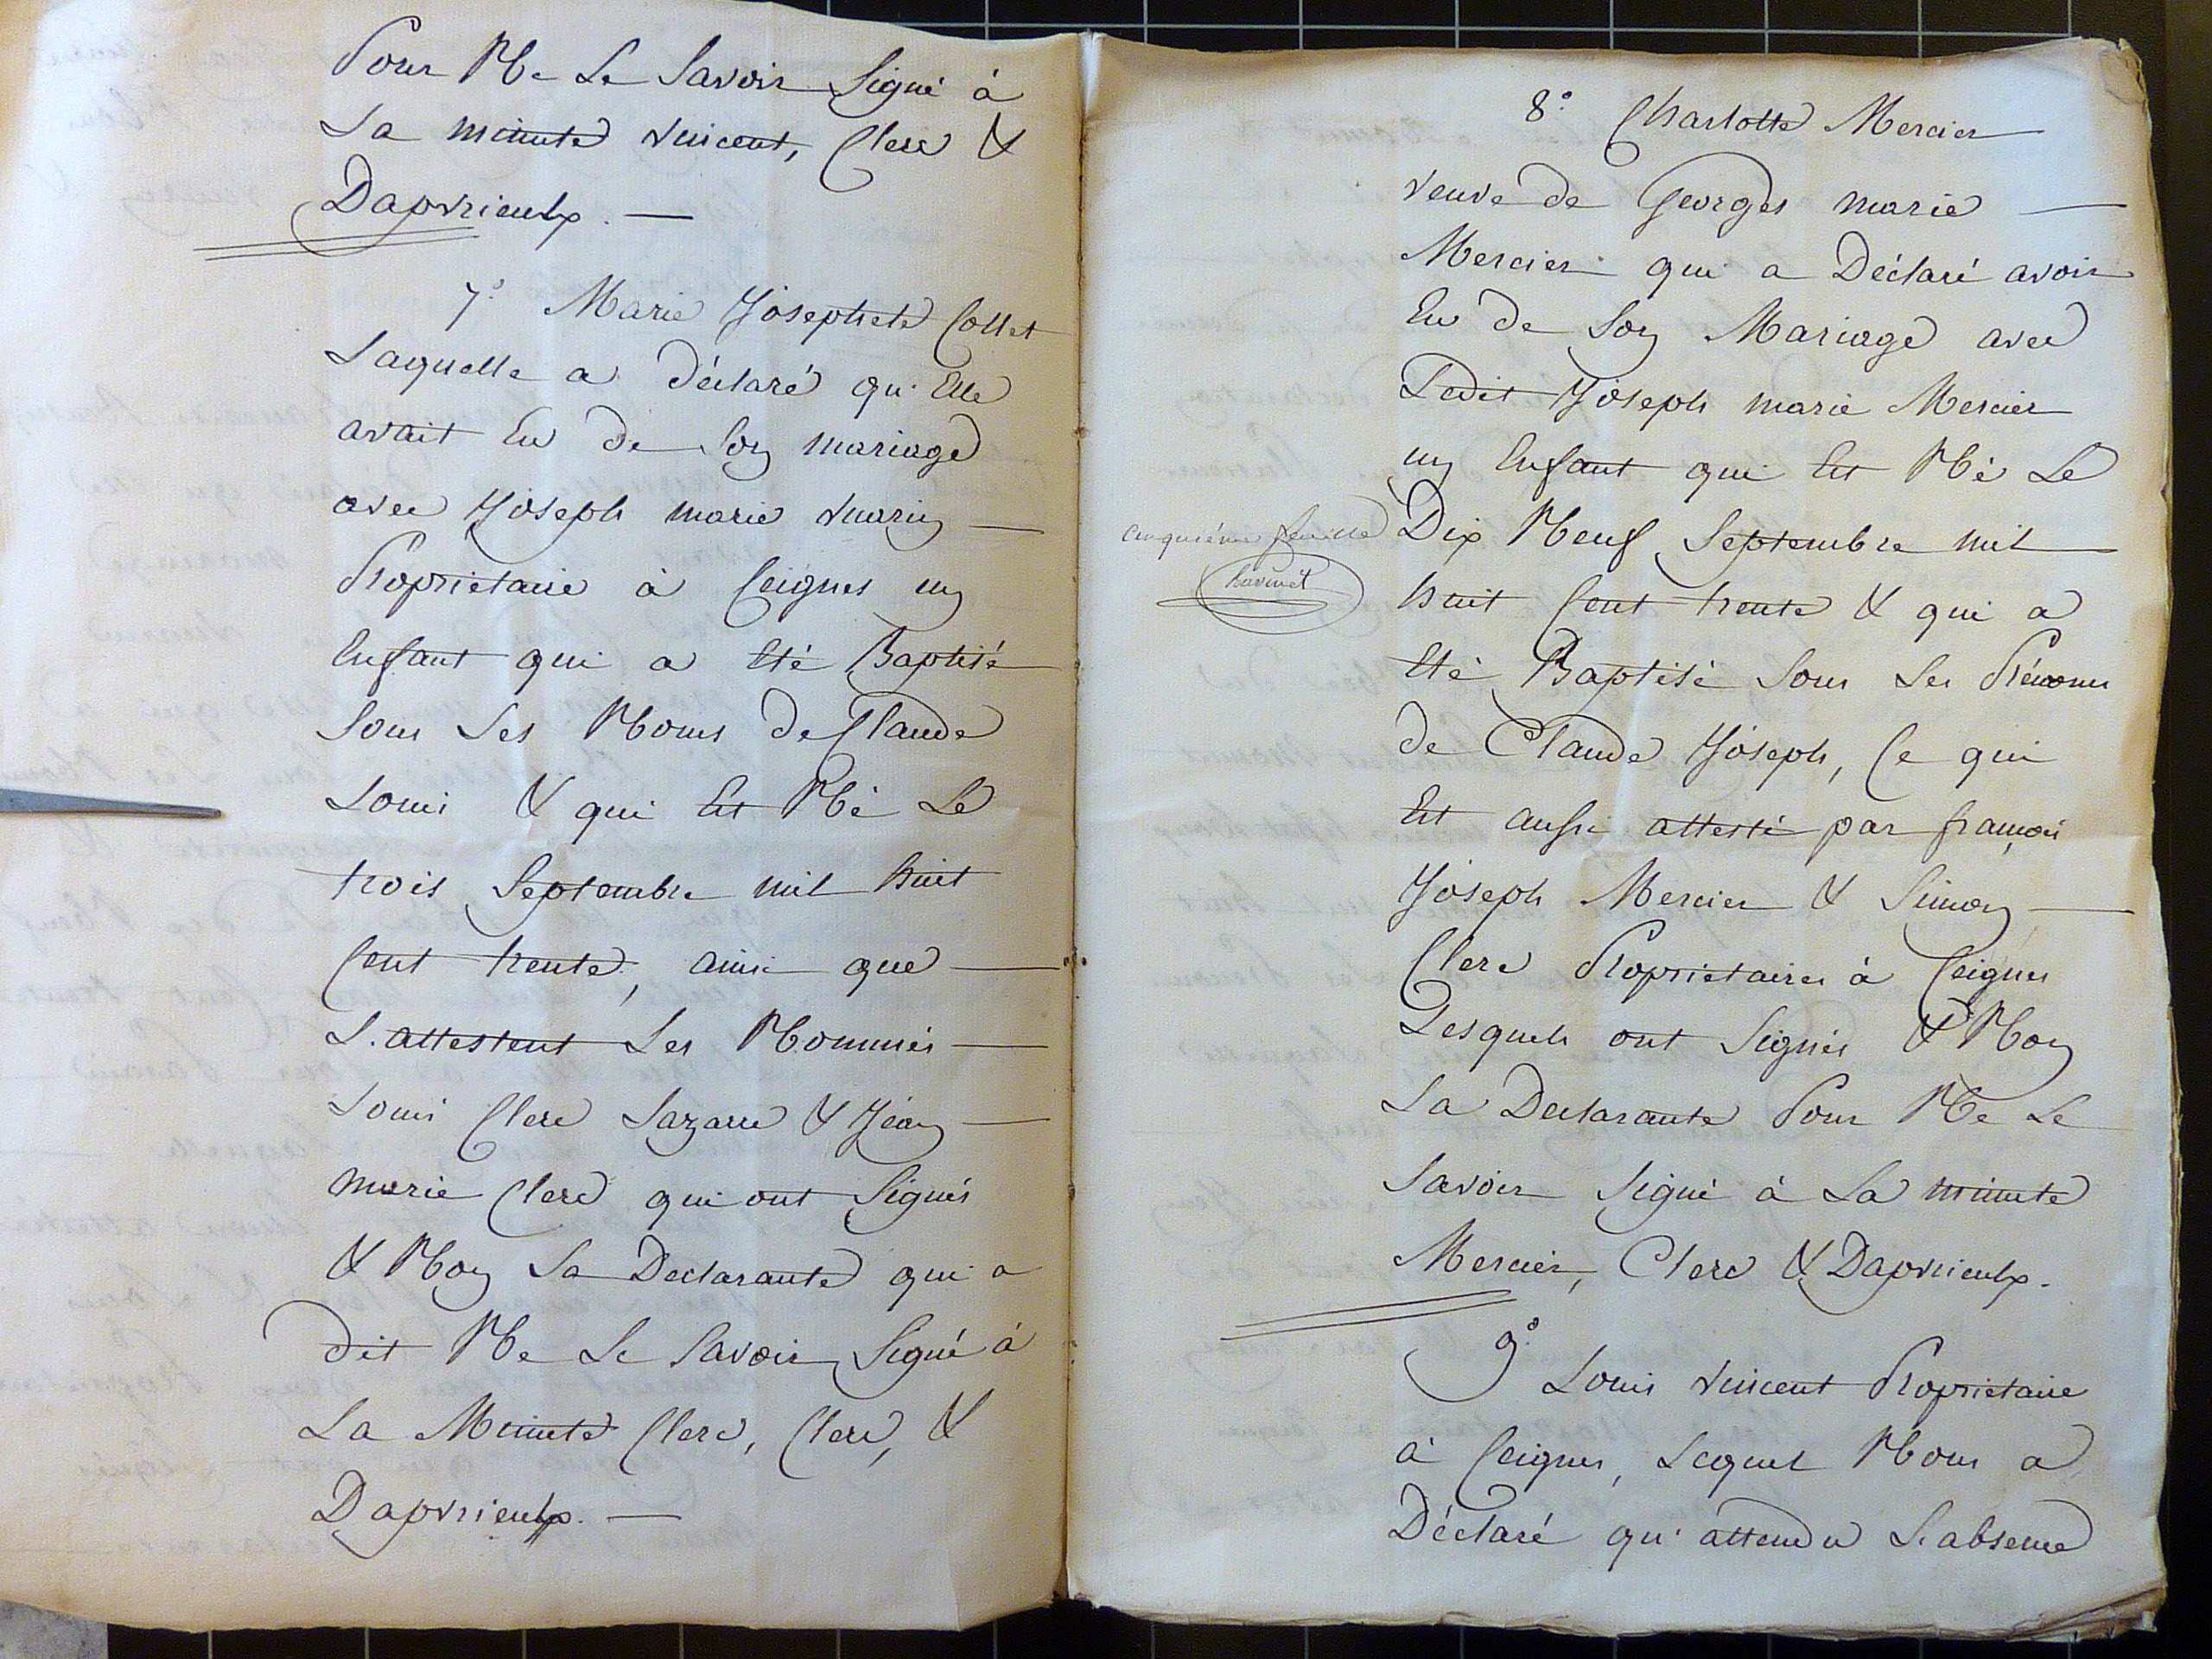 Pour Ne Le Savoir Signé à
La minute vincent, Clerc &
Dapvrieulx. —
7.° Marie Josephete Collet
Laquelle a déclaré qu'Elle
avait Eu de Son mariage
avec Joseph marie vuarin —
Propriétaire à Ceignes un
Enfant qui a Eté Baptisé
Sous Les Noms de Claude
Louis & qui Est Né Le
trois Septembre mil huit
Cent trente, ainsi que —
L'attestent Les Nommés —
Louis Clerc Lazare & Jean —
marie Clerc qui ont Signés
& Non La Declarante qui a
dit Ne Le Savoir Signé à
La Minute Clerc, Clerc, &
Dapvrieulx. —
8.° Charlotte Mercier
veuve de Georges marie —
Mercier qui a Déclaré avoir
Eu de Son Mariage avec
Ledit Joseph marie Mercier
un Enfant qui Est Né Le
Dix Neuf Septembre mil
huit Cent trente & qui a
Eté Baptisé Sous Les Prénoms
de Claude Joseph, Ce qui
Est aussi attesté par françois
Joseph Mercier & Simon —
Clerc Propriétaires à Ceignes
Lesquels ont Signés & Non
La Declarante Pour Ne Le
Savoir Signé à La minute
Mercier, Clerc & Dapvrieulx.
9.° Louis vincent Propriétaire
à Ceignes, Lequel Nous a
Déclaré qu'attendu L'absence
cinquième feuille